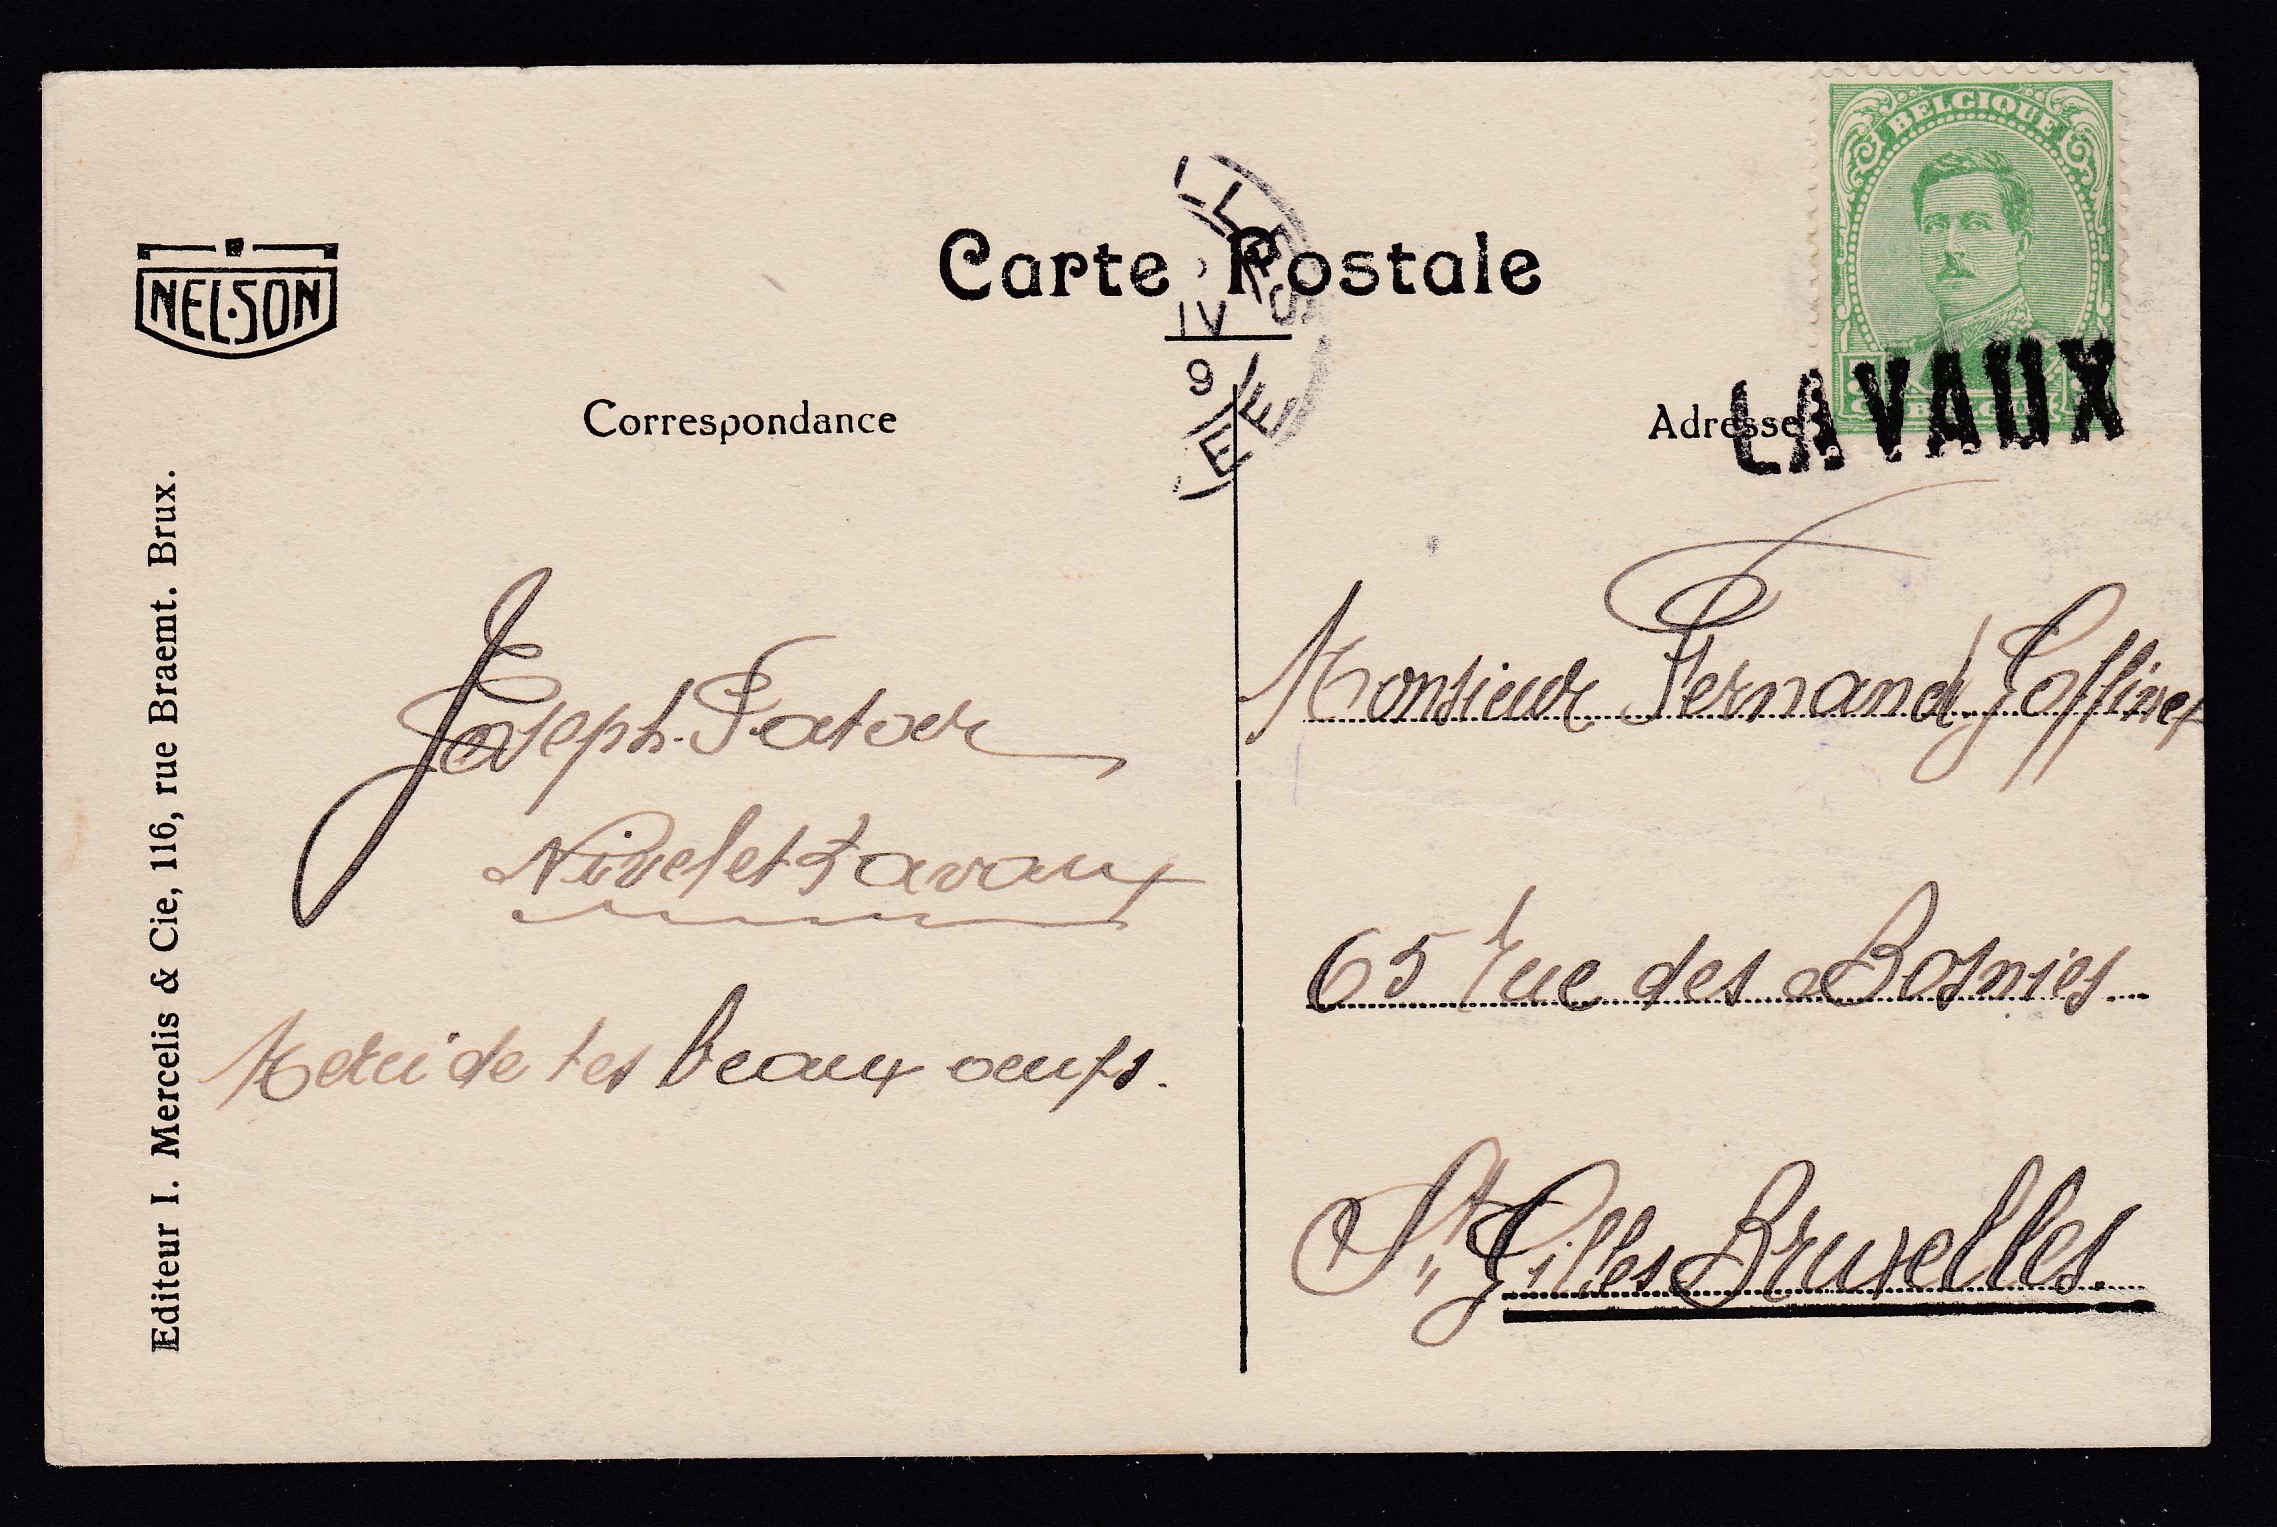 BELGIQUE
Carte Postale
NELSON
IV
9
LAVAUX
Correspondance
Adresse
Editeur I. Mercelis & Cie, 116, rue Braemt. Brux.
Joseph
Monsieur Fernand Goffinet
65 rue des Bosnies.
Merci de tes beaux oeufs.
St Gilles Bruxelles.